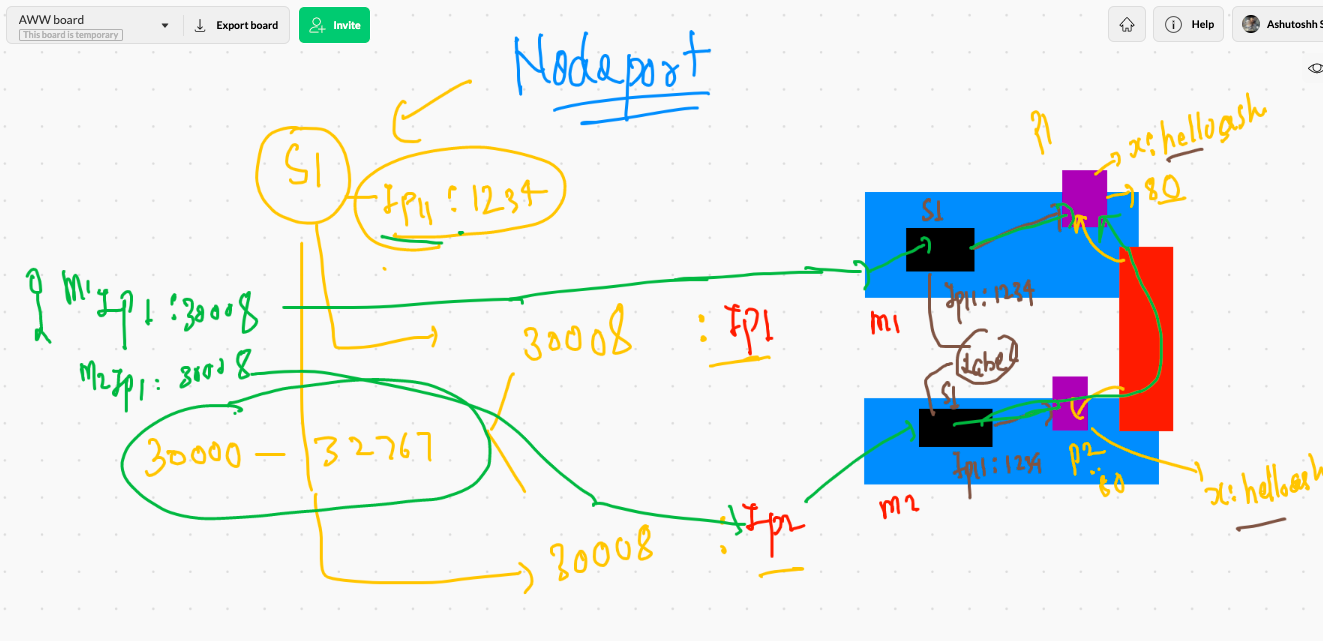 AWW board
This board is temporary
Export board
Invite
Help
Ashutoshh S
Nodeport
S1
Ip11 : 1234
M1 Ip1 : 30008
M2 Ip1 : 30008
30008 : Ip1
30000 — 32767
30008 : Ip2
P1
x:helloash
80
S1
Ip11:1234
M1
Label
S1
Ip11:1234
P2
:80
M2
x:helloash